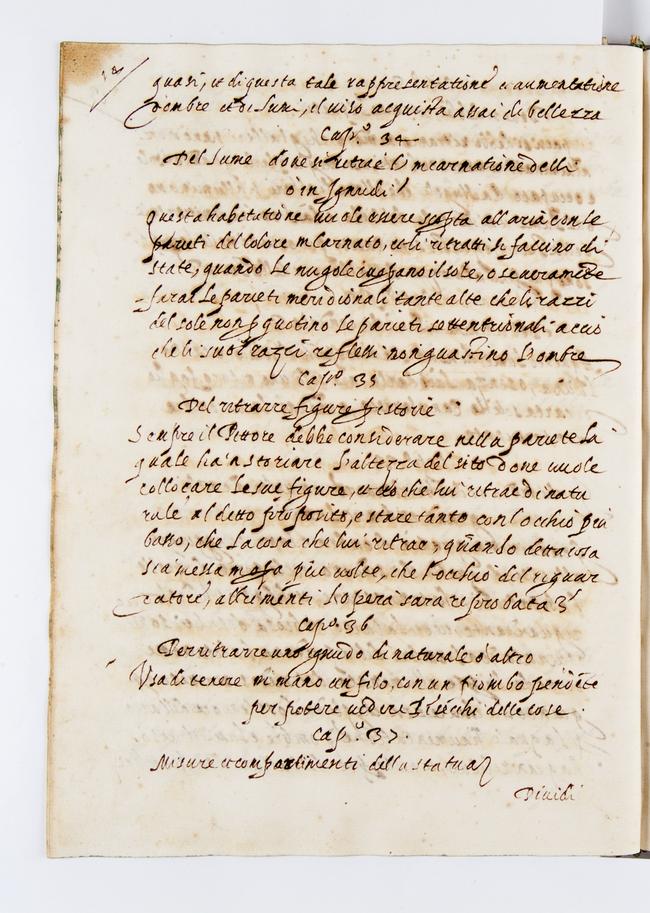 12
quasi, et di questa tale rappresentatione e aumentatione
d'ombre et di lumi, il viso acquista assai di bellezza
Cap.º 34
Del lume done si ritrae l'incarnatione delli
o in Ignudi
Questa habitatione uuole essere scopta all'aria con le
parieti del colore incarnato, et li ritratti si faccino di
state, quando le nugole cuopano il sole, o se ueramēte
farai le parieti meridionali tante alte che li razzi
del sole non pquotino le parieti settentrionali accio
che li suoi razzi reflessi non guastino l'ombre
Cap.º 35
Del ritrarre figure p istorie
Sempre il Pittore debbe considerare nella pariete la
quale ha'n storiare l'altezza del sito done uuole
collocare le sue figure, et ciò che lui ritrae di natu
rale al detto proposito, e stare tanto con l'occhio piu
basso, che la cosa che lui ritrae, quando detta cosa
sia messa piu volte, che l'occhio del riguar
datore, altrimenti l'opera sara reprobata
Cap.º 36
Per ritrarre uno ignudo di naturale o altro
Usa di tenere in mano un filo, con un piombo pendēte
per potere uedere delle cose.
Cap.º 37.
Misure et compartimenti della statua
Diuidi